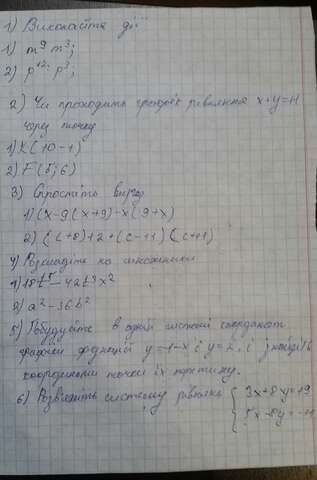 1) Виконайте дії
1) m⁹ m³;
2) p¹²: p³;
2) Чи проходить графік рівняння x+y=11
через точку
1) K(10 -1)
2) F(5; 6)
3) Спростіть вираз
1) (x-9(x+9)-x(9+x)
2) (c+8)+2+(c-11)(c+11)
4) Розкладіть на множники
1) 18t⁵-42t³x²
2) a²-36b²
5) Побудуйте в одній системі координат
графіки функцій y=1-x і y=2, і знайдіть
координати точки їх перетину.
6) Розв'яжіть систему рівнянь { 3x+8y=19
5x-8y=-11